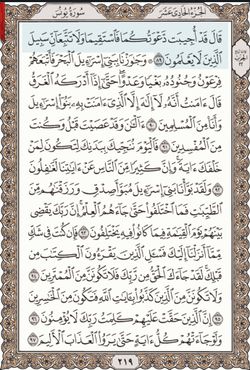 الجزء الحادي عشر سورة يونس
قال قد أجيبت دعوتكما فاستقيما ولا تتبعان سبيل
الذين لا يعلمون ٨٩ ۞ وجاوزنا ببني إسرائيل البحر فأتبعهم
فرعون وجنوده بغيا وعدوا حتى إذا أدركه الغرق
قال ءامنت أنه لا إله إلا الذي ءامنت به بنوا إسرائيل
وأنا من المسلمين ٩٠ ءالآن وقد عصيت قبل وكنت
من المفسدين ٩١ فاليوم ننجيك ببدنك لتكون لمن
خلفك ءاية وإن كثيرا من الناس عن ءاياتنا لغافلون
٩٢ ولقد بوأنا بني إسرائيل مبوأ صدق ورزقناهم من
الطيبات فما اختلفوا حتى جاءهم العلم إن ربك يقضي
بينهم يوم القيامة فيما كانوا فيه يختلفون ٩٣ فإن كنت في شك
مما أنزلنا إليك فسئل الذين يقرءون الكتاب من
قبلك لقد جاءك الحق من ربك فلا تكونن من الممترين ٩٤
ولا تكونن من الذين كذبوا بءايات الله فتكون من الخاسرين
٩٥ إن الذين حقت عليهم كلمت ربك لا يؤمنون ٩٦
ولو جاءتهم كل ءاية حتى يروا العذاب الأليم ٩٧
٢١٩